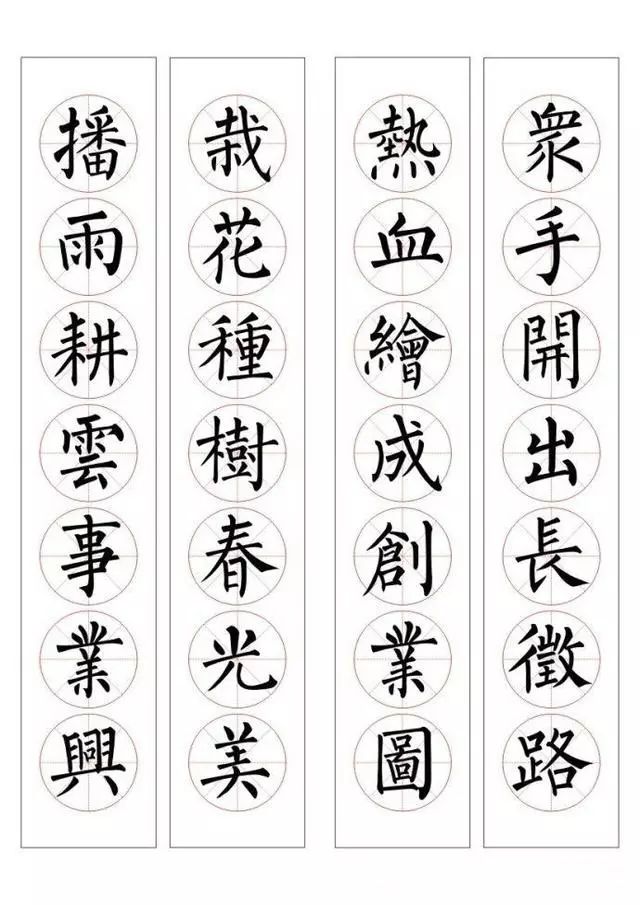 衆手開出長徵路
熱血繪成創業圖
栽花種樹春光美
播雨耕雲事業興